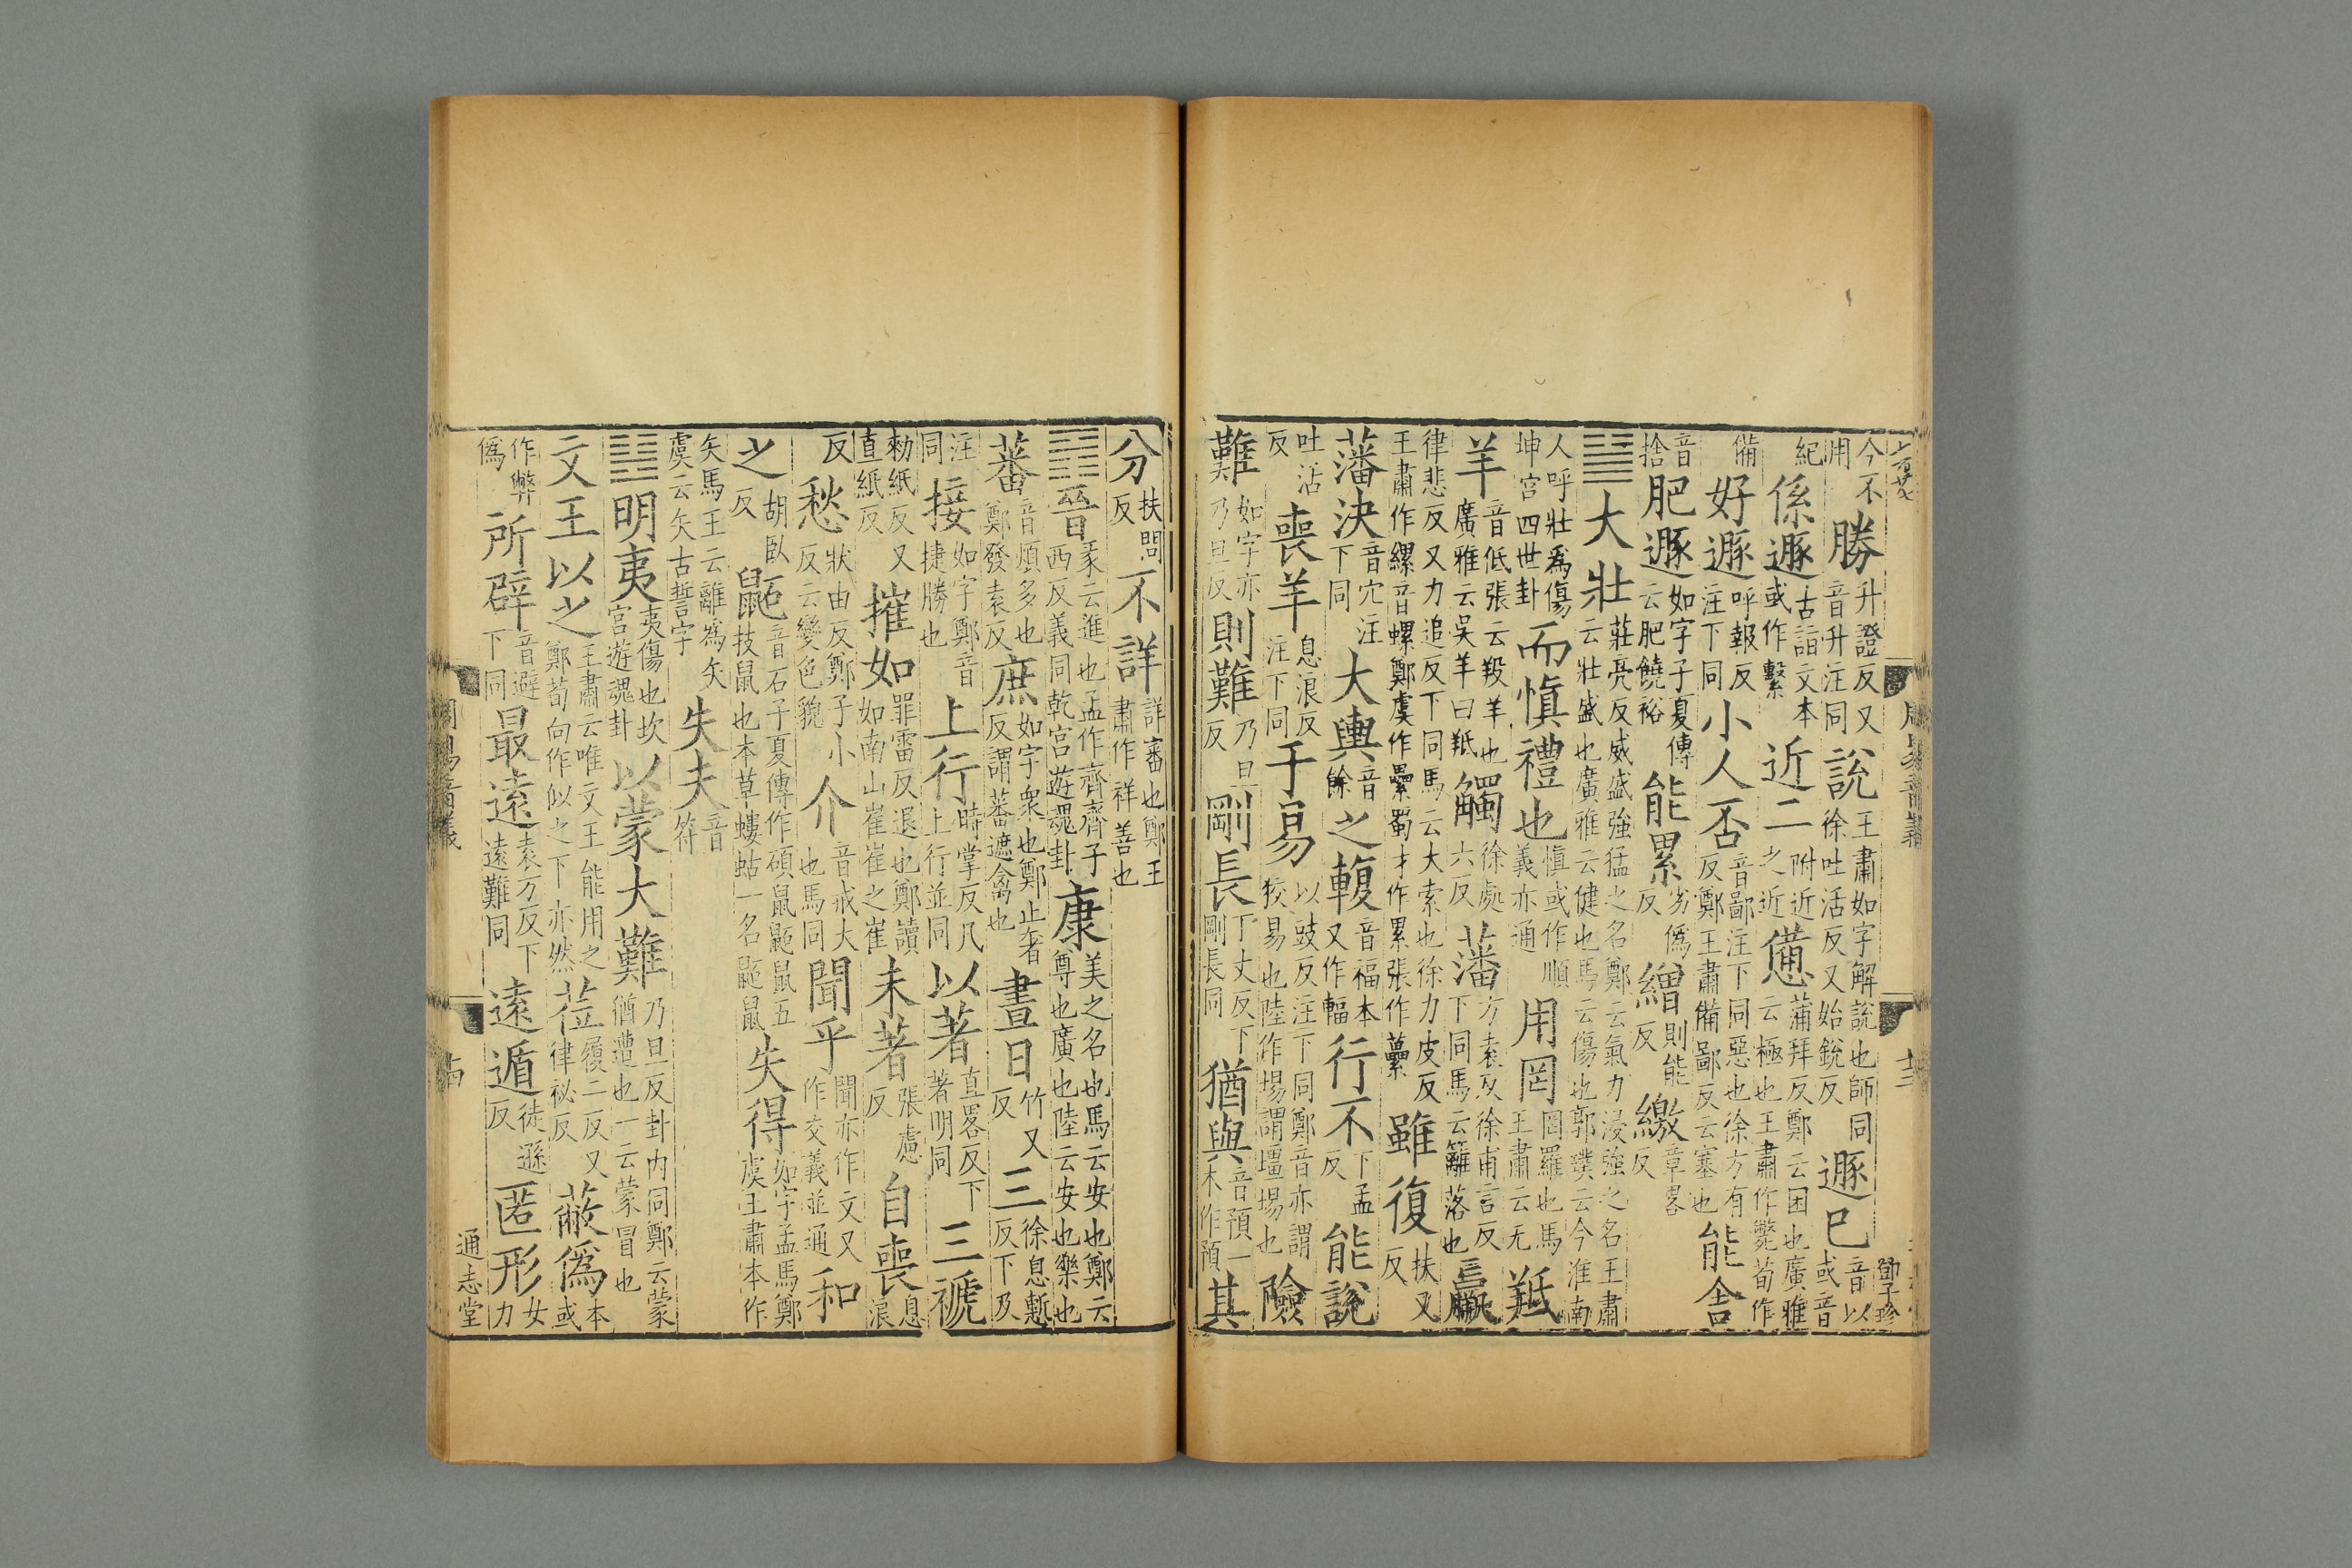 今不用勝升證反又音升注同說王肅如字解說也師同徐吐活反又始銳反遯已音以或音
紀係遯古詣反本或作繫近二附近之近憊蒲拜反鄭云困也廣雅云極也王肅作斃荀作
備好遯呼報反注下同小人否音鄙注下同惡也徐方有反鄭王肅備鄙反云塞也能舍
音捨肥遯如字子夏傳云肥饒裕能累劣僞反繒則能反繳章畧反
䷡大壯莊亮反威盛強猛之名鄭云氣力浸強之名王肅云壯盛也廣雅云健也馬云傷也郭璞云今淮南
人呼壯爲傷坤宫四世卦而愼禮也愼或作順義亦通用罔罔羅也馬王肅云无羝
羊音低張云羖羊也廣雅云吴羊曰羝觸徐處六反藩方袁反徐甫言反下同馬云籬落也羸
律悲反又力追反下同馬云大索也徐力皮反王肅作縲音螺鄭虞作纍蜀才作累張作虆雖復扶又反
藩決音穴注下同大輿音餘之輹音福本又作輻行不下孟反能說
吐活反喪羊息浪反注下同于易以豉反注下同鄭音亦謂狡易也陸作場謂壇場也險
難如字亦乃旦反則難乃旦反剛長丁丈反下剛長同猶與音預一本作預其
周易音義
通志堂
分扶問反不詳詳審也鄭王肅作祥善也
䷢晉彖云進也孟作齊齊子西反義同乾宫遊魂卦康美之名也馬云安也鄭云尊也廣也陸云安也樂也
蕃音煩多也鄭發袁反庶如字衆也鄭止奢反謂蕃遮禽也晝日竹又反三徐息慙反下及
注同接如字鄭音捷勝也上行時掌反凡上行並同以著直畧反下著明同三褫
勑紙反又直紙反摧如罪雷反退也鄭讀如南山崔崔之崔未著張慮反自喪息浪
反愁狀由反鄭子小反云變色貌介音戒大也馬同聞乎聞亦作文又作交義並通和
之胡臥反鼫音石子夏傳作碩鼠鼫鼠五技鼠也本草螻蛄一名鼫鼠失得如字孟馬鄭虞王肅本作
矢馬王云離爲矢虞云矢古誓字失夫音符
䷣明夷夷傷也坎宫遊魂卦以蒙大難乃旦反卦内同鄭云蒙猶遭也一云蒙冒也
文王以之王肅云唯文王能用之鄭荀向作似之下亦然莅履二反又律祕反蔽僞本或
作弊僞所辟音避下同最遠袁万反下遠難同遠遁徒遜反匿形女力